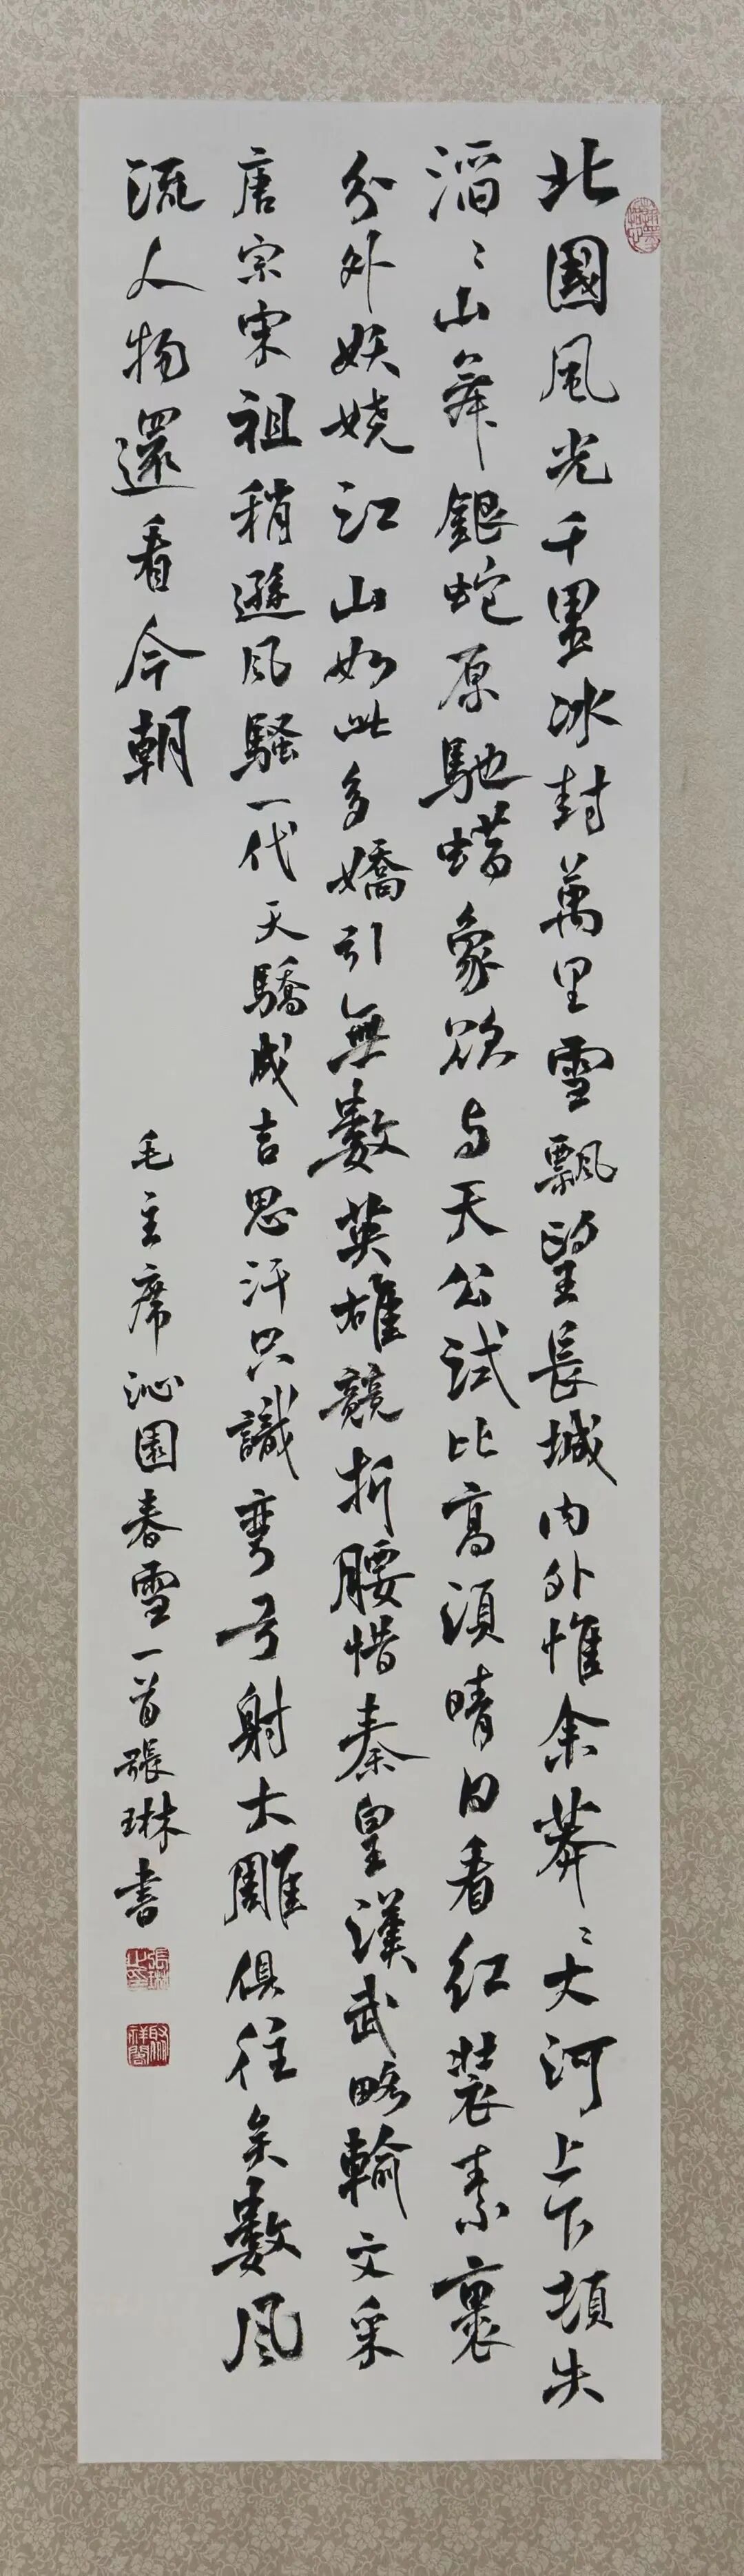 北國風光千里冰封萬里雪飄望長城内外惟余莽〻大河上下頓失
滔〻山舞銀蛇原馳蜡象欲与天公試比高須晴日看紅裝素裹
分外妖嬈江山如此多嬌引無數英雄競折腰惜秦皇漢武略輸文采
唐宗宋祖稍遜風騷一代天驕成吉思汗只識彎弓射大雕俱往矣數風
流人物還看今朝
毛主席沁園春雪一首張琳書
張琳之印